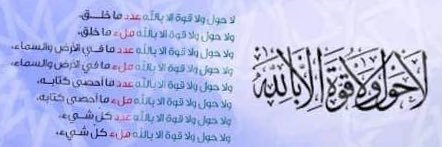 لا حول ولا قوة الا بالله عدد ما خلق،
ولا حول ولا قوة الا بالله ملء ما خلق،
ولا حول ولا قوة الا بالله عدد ما في الأرض والسماء،
ولا حول ولا قوة الا بالله ملء ما في الارض والسماء،
ولا حول ولا قوة الا بالله عدد ما أحصى كتابه،
ولا حول ولا قوة الا بالله ملء ما أحصى كتابه،
ولا حول ولا قوة الا بالله عدد كل شيء،
ولا حول ولا قوة الا بالله ملء كل شيء،
لا حول ولا قوة إلا بالله